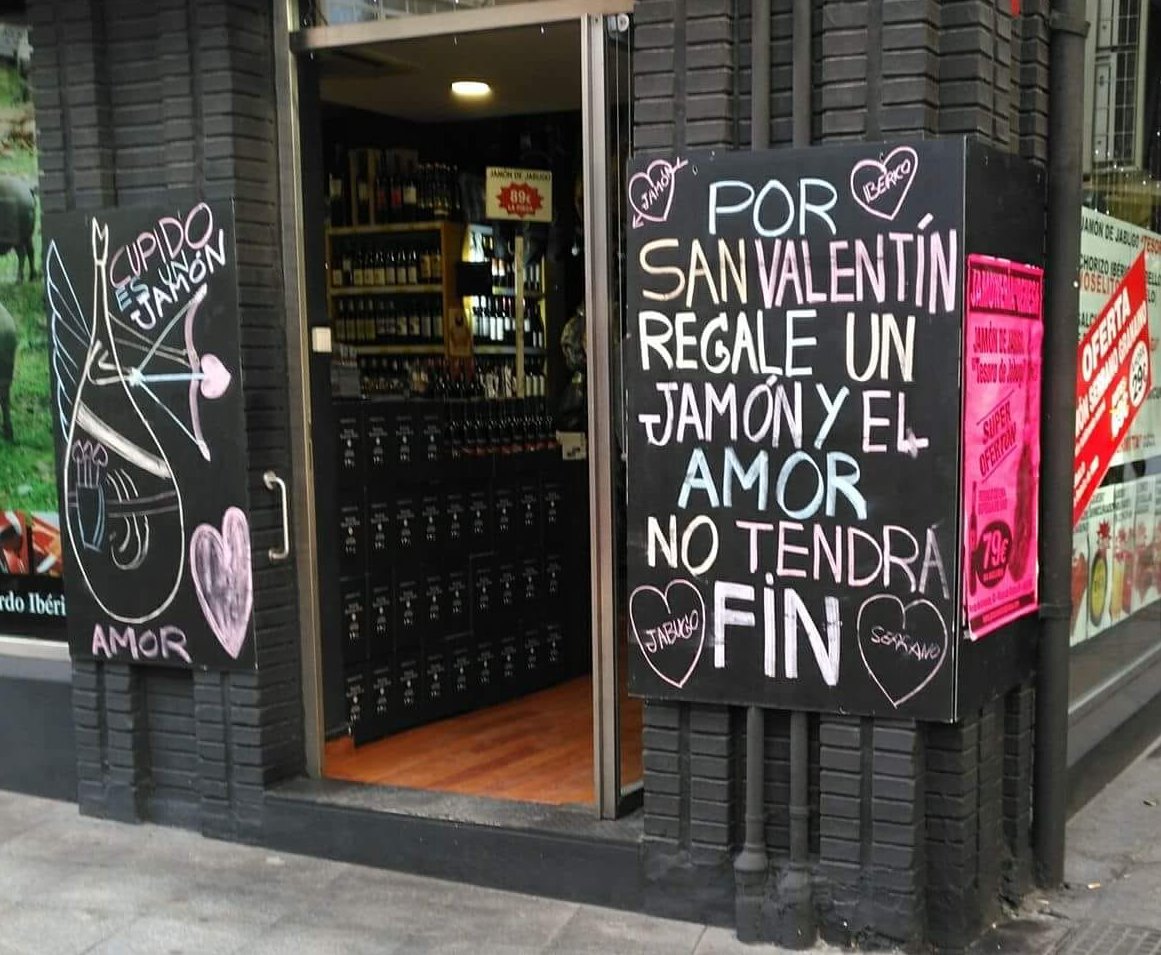 CUPIDO
ES UN
JAMÓN
AMOR
rdo Ibéri
JAMÓN DE JABUGO
89€
LA PIEZA
JAMÓN
IBERICO
POR
SAN VALENTÍN
REGALE UN
JAMÓN Y EL
AMOR
NO TENDRA
FIN
JABUGO
SERRANO
JAMÓN DE JABUGO
"Tesoro de Jabugo"
SUPER
OFERTON
79€
JAMÓN DE JABUGO "TESOR
CHORIZO IBÉRI
JOSELITO
OFERTA